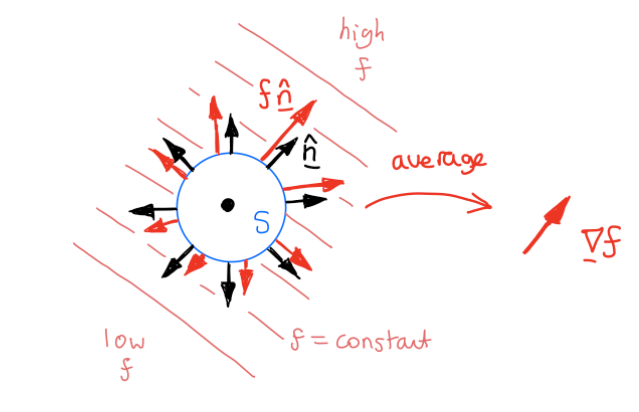 high
f
f n̂
n̂
average
S
∇f
low
f
f = constant